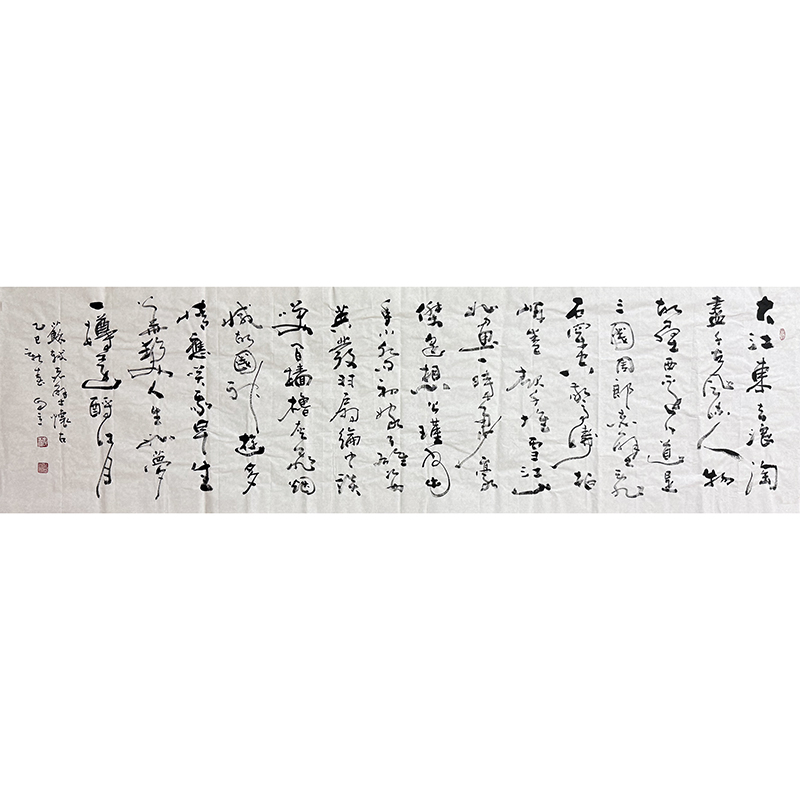 大江東去浪淘
盡千古風流人物
故壘西邊人道是
三國周郎赤壁亂
石穿空驚濤拍
岸卷起千堆雪江山
如畫一時多少豪
傑遙想公瑾當
年小喬初嫁了雄姿
英發羽扇綸巾談
笑間檣櫓灰飛煙
滅故國神遊多
情應笑我早生
華髮人生如夢
一樽還酹江月
蘇軾赤壁懷古
乙巳